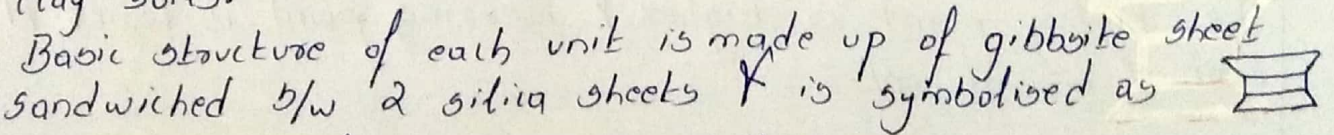 Basic structure of each unit is made up of gibbsite sheet
sandwiched b/w 2 silica sheets & is symbolised as